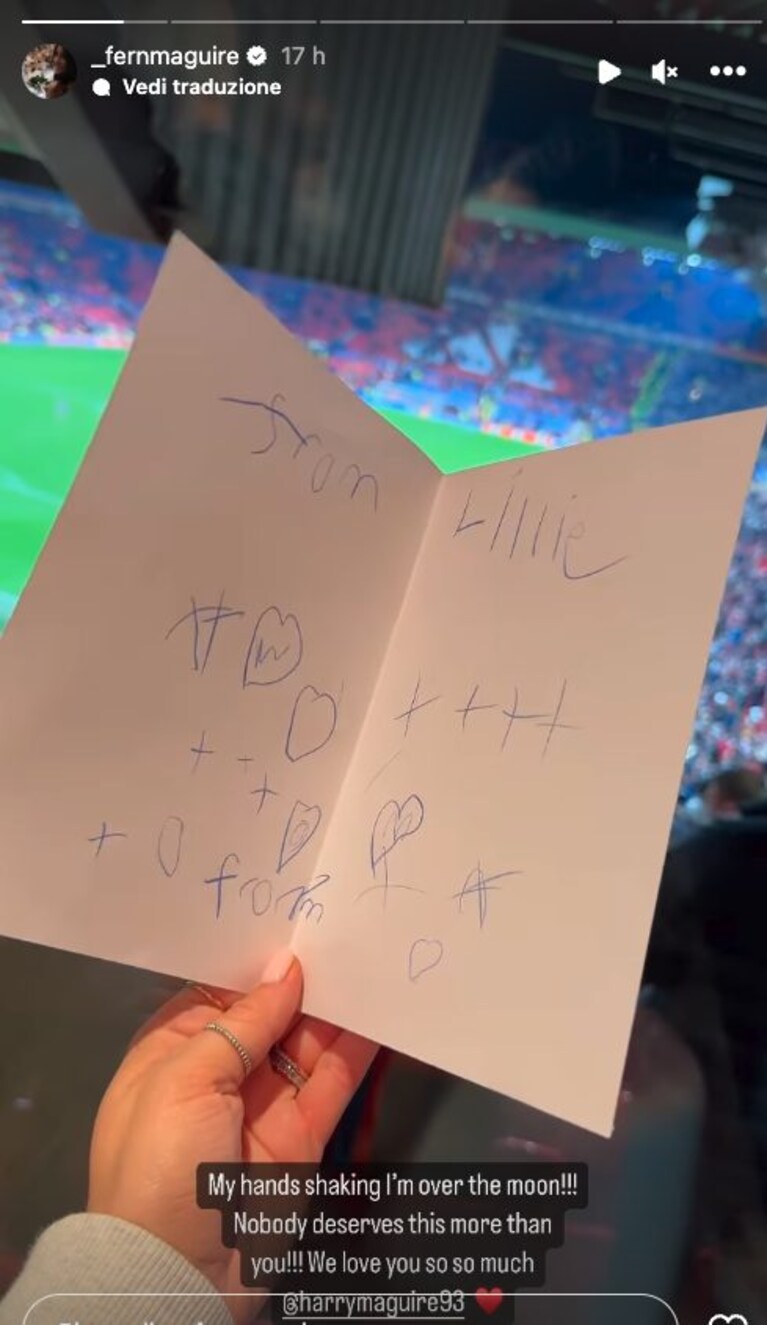 _fernmaguire 17 h
Vedi traduzione
from Lillie
from
My hands shaking I'm over the moon!!!
Nobody deserves this more than
you!!! We love you so so much
@harrymaguire93 ❤️